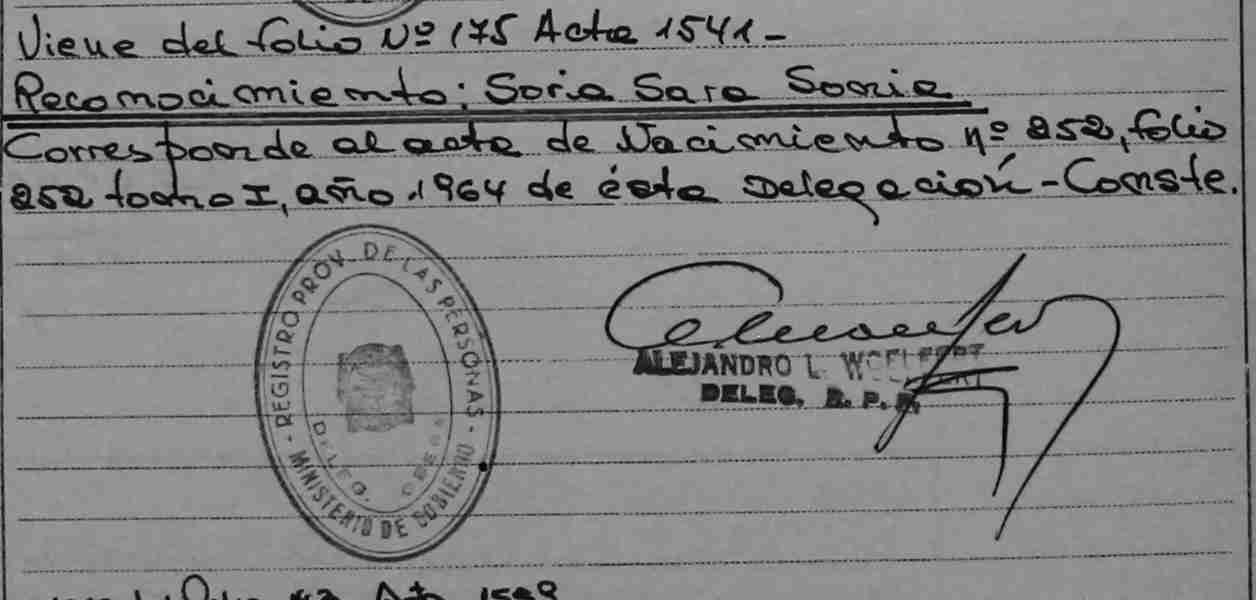 Viene del folio Nº 175 Acta 1541-
Reconocimiento: Soria Sara Sonia
Corresponde al acta de Nacimiento nº 252, folio
252 tomo I, año 1964 de ésta Delegación - Conste.
- REGISTRO PROV. DE LAS PERSONAS -
MINISTERIO DE GOBIERNO
DELEG.
ALEJANDRO L.
DELEG. R. P. P.